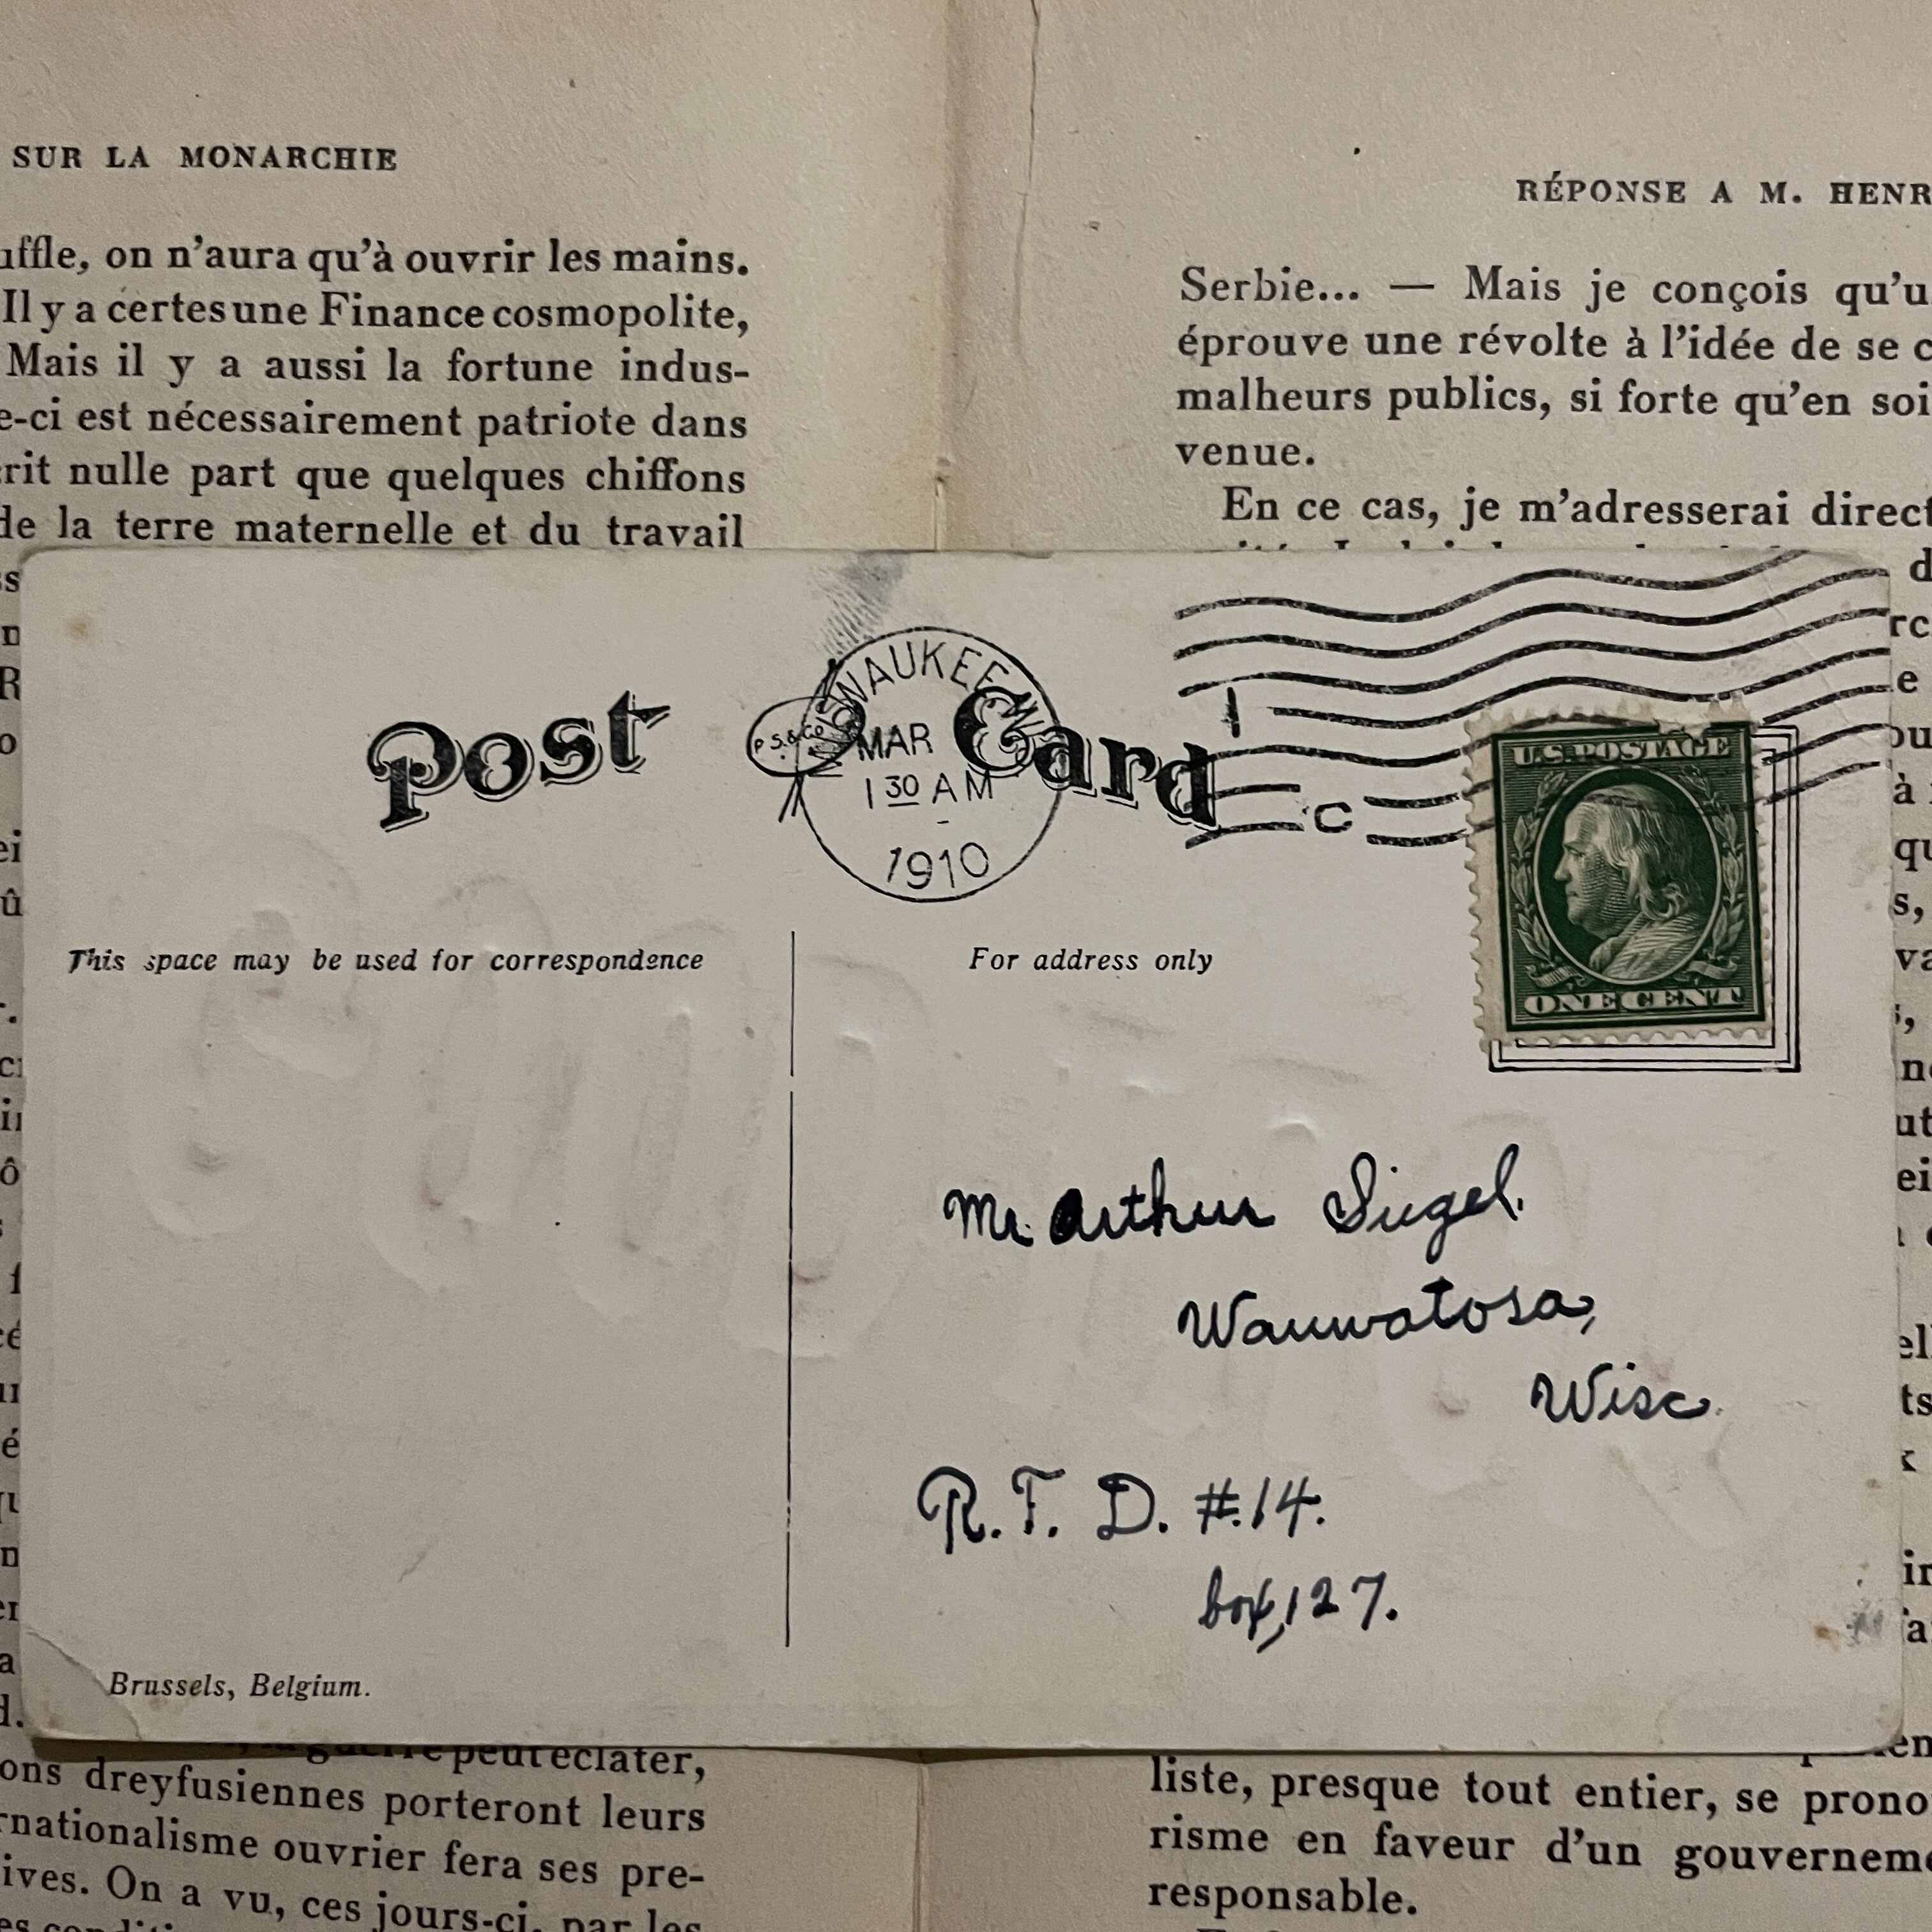 SUR LA MONARCHIE
uffle, on n'aura qu'à ouvrir les mains.
Il y a certes une Finance cosmopolite,
Mais il y a aussi la fortune indus-
e-ci est nécessairement patriote dans
rit nulle part que quelques chiffons
de la terre maternelle et du travail
RÉPONSE A M. HENR
Serbie... — Mais je conçois qu'u
éprouve une révolte à l'idée de se c
malheurs publics, si forte qu'en soi
venue.
En ce cas, je m'adresserai direct
Post Card
P.S.&Co
MILWAUKEE, WIS
MAR
1 30 AM
1910
1
C
U.S. POSTAGE
ONE CENT
This space may be used for correspondence
For address only
Mr. Arthur Siegel.
Wauwatosa,
Wisc.
R.F.D. #14.
box, 127.
Brussels, Belgium.
la guerre peut éclater,
ons dreyfusiennes porteront leurs
rnationalisme ouvrier fera ses pre-
ives. On a vu, ces jours-ci, par les
liste, presque tout entier, se prono
risme en faveur d'un gouverneme
responsable.